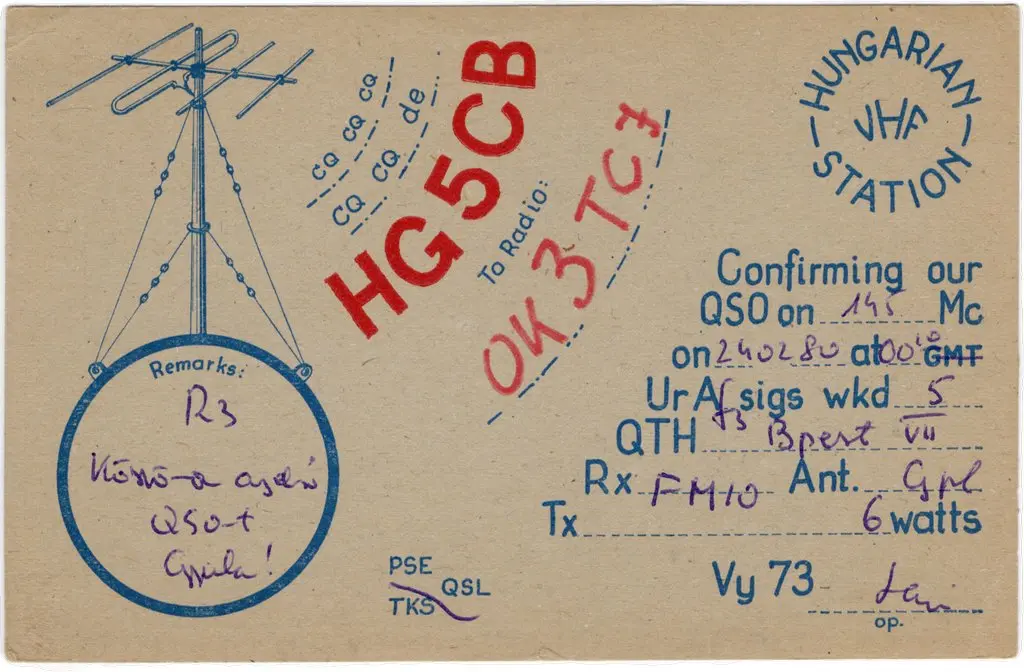 CQ CQ CQ
CQ CQ de
HG5CB
To Radio:
OK3TCZ
HUNGARIAN
VHF
STATION
Confirming our
QSO on 145 Mc
on 240280 at 00¹⁰ GMT
Ur A sigs wkd 5
QTH Bpest VII
Rx FM10 Ant. Gpl
Tx 6 watts
Vy 73
op.
Remarks:
R3
QSO-t
Gyula!
PSE
QSL
TKS